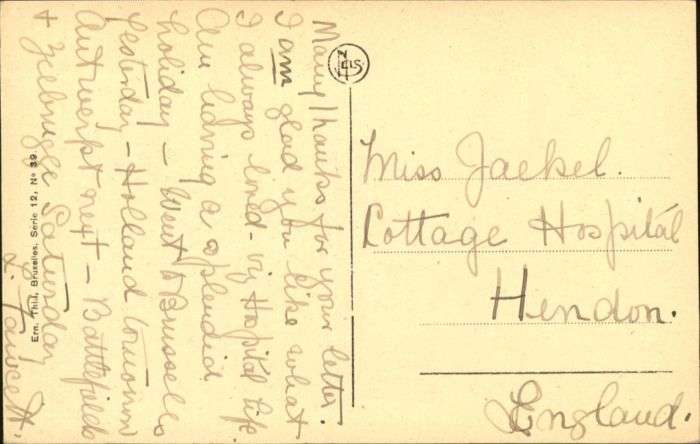 Many thanks for your letter.
I am glad you like what
I always loved - viz Hospital life.
Am having a splendid
holiday - Went to Brussels
yesterday - Holland tomorrow
Antwerp next - Battlefields
+ Zeebrugge Saturday
L. Fawcett.
NELS
Ern. Thill, Bruxelles. Serie 12, No 39.
Miss Jaekel.
Cottage Hospital
Hendon.
England.